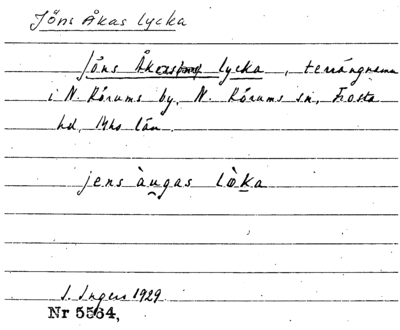 Jöns Åkas lycka
Jöns Åkas lycka, terrängnamn
i N. Rörums by, N. Rörums sn, Frosta
hd, Mhs län.
jens àu̯gas lòka
I. Ingers 1929
Nr 5564,